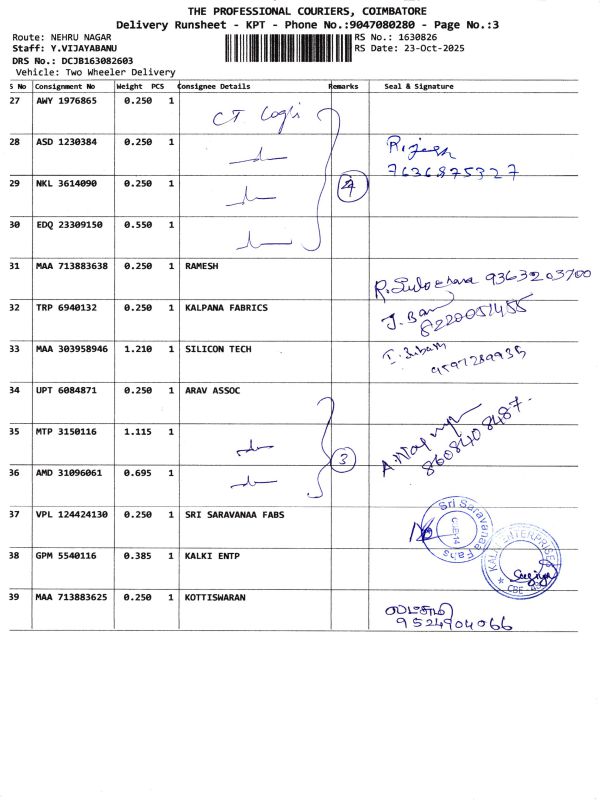 THE PROFESSIONAL COURIERS, COIMBATORE
Delivery Runsheet - KPT - Phone No.:9047080280 - Page No.:3
Route: NEHRU NAGAR
RS No.: 1630826
Staff: Y.VIJAYABANU
RS Date: 23-Oct-2025
DRS No.: DCJB163082603
Vehicle: Two Wheeler Delivery
S No Consignment No Weight PCS Consignee Details Remarks Seal & Signature
27 AWY 1976865 0.250 1 CT Logli
28 ASD 1230384 0.250 1 Rijesh
7636875327
29 NKL 3614090 0.250 1 4
30 EDQ 23309150 0.550 1
31 MAA 713883638 0.250 1 RAMESH R. Sulochana 9363203700
32 TRP 6940132 0.250 1 KALPANA FABRICS J. Ban
8220051455
33 MAA 303958946 1.210 1 SILICON TECH
9597289935
34 UPT 6084871 0.250 1 ARAV ASSOC
35 MTP 3150116 1.115 1
8608408487
36 AMD 31096061 0.695 1 3
37 VPL 124424130 0.250 1 SRI SARAVANAA FABS Sri Saravanaa Fabs
38 GPM 5540116 0.385 1 KALKI ENTP KALKI ENTERPRISES
39 MAA 713883625 0.250 1 KOTTISWARAN
9524904066